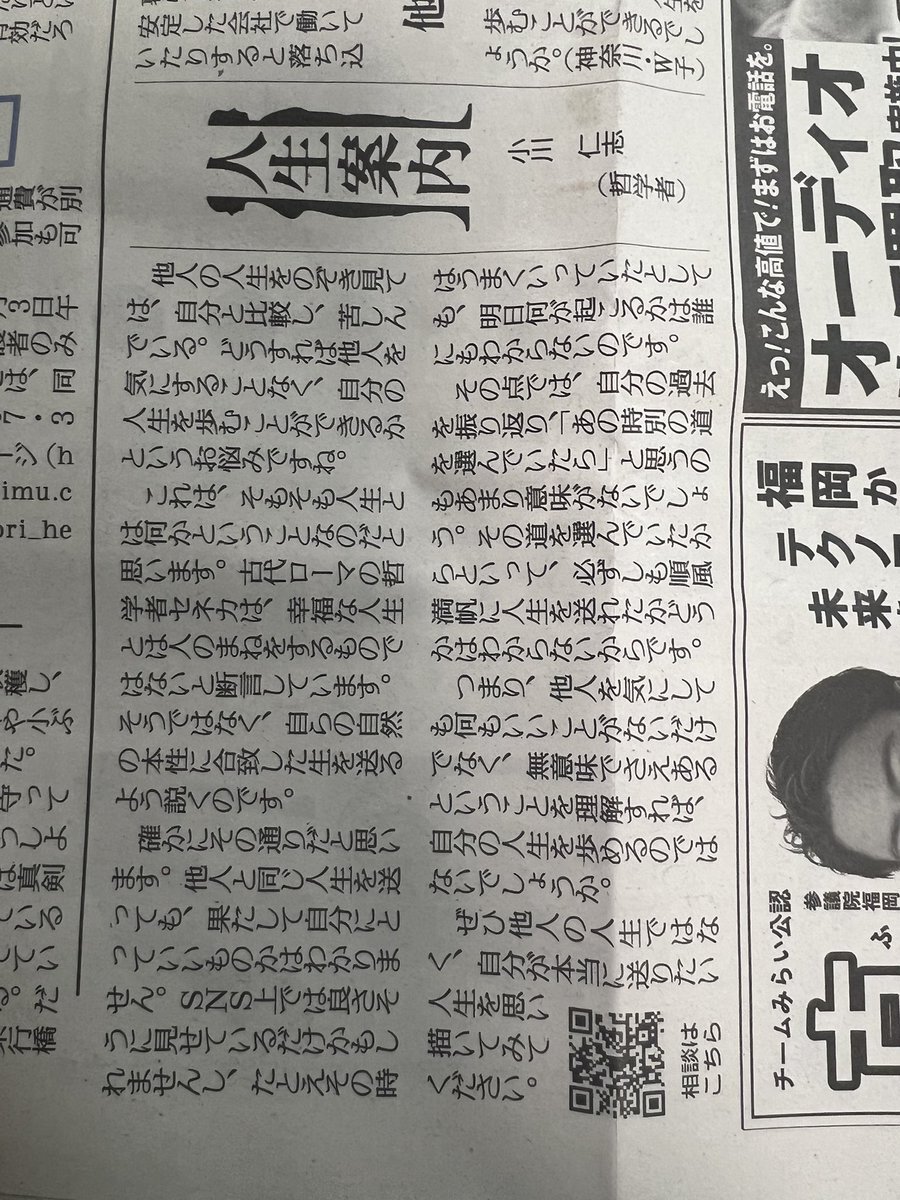 安定した会社で働いて
いたりすると落ち込
歩むことができるでし
ょうか。(神奈川・W子)
人生案内
小川 仁志
(哲学者)
他人の人生をのぞき見て
は、自分と比較し、苦しん
でいる。どうすれば他人を
気にすることなく、自分の
人生を歩むことができるか
というお悩みですね。
これは、そもそも人生と
は何かということなのだと
思います。古代ローマの哲
学者セネカは、幸福な人生
とは人のまねをするもので
はないと断言しています。
そうではなく、自らの自然
の本性に合致した生を送る
よう説くのです。
確かにその通りだと思い
ます。他人と同じ人生を送
っても、果たして自分にと
っていいものかはわかりま
せん。SNS上では良さそ
うに見せているだけかもし
れませんし、たとえその時
はうまくいっていたとして
も、明日何が起こるかは誰
にもわからないのです。
その点では、自分の過去
を振り返り、「あの時別の道
を選んでいたら」と思うの
もあまり意味がないでしょ
う。その道を選んでいたか
らといって、必ずしも順風
満帆に人生を送れたかどう
かはわからないからです。
つまり、他人を気にして
も何もいいことがないだけ
でなく、無意味でさえある
ということを理解すれば、
自分の人生を歩めるのでは
ないでしょうか。
ぜひ他人の人生ではな
く、自分が本当に送りたい
人生を思い
描いてみて
ください。
相談は
こちら
えっ!こんな高値で!まずはお電話を。
オーディオ
福岡か
テクノ
未来
チームみらい公認
参議院福岡
古
ふ
有効だろ
通費が別
参加も可
月3日午
者のみ
は、同
7・3
ージ(h
imu.c
ori_he
穫し、
や小ぶ
た。
守って
うしよ
は真剣
ている
してい
る。だ
行橋